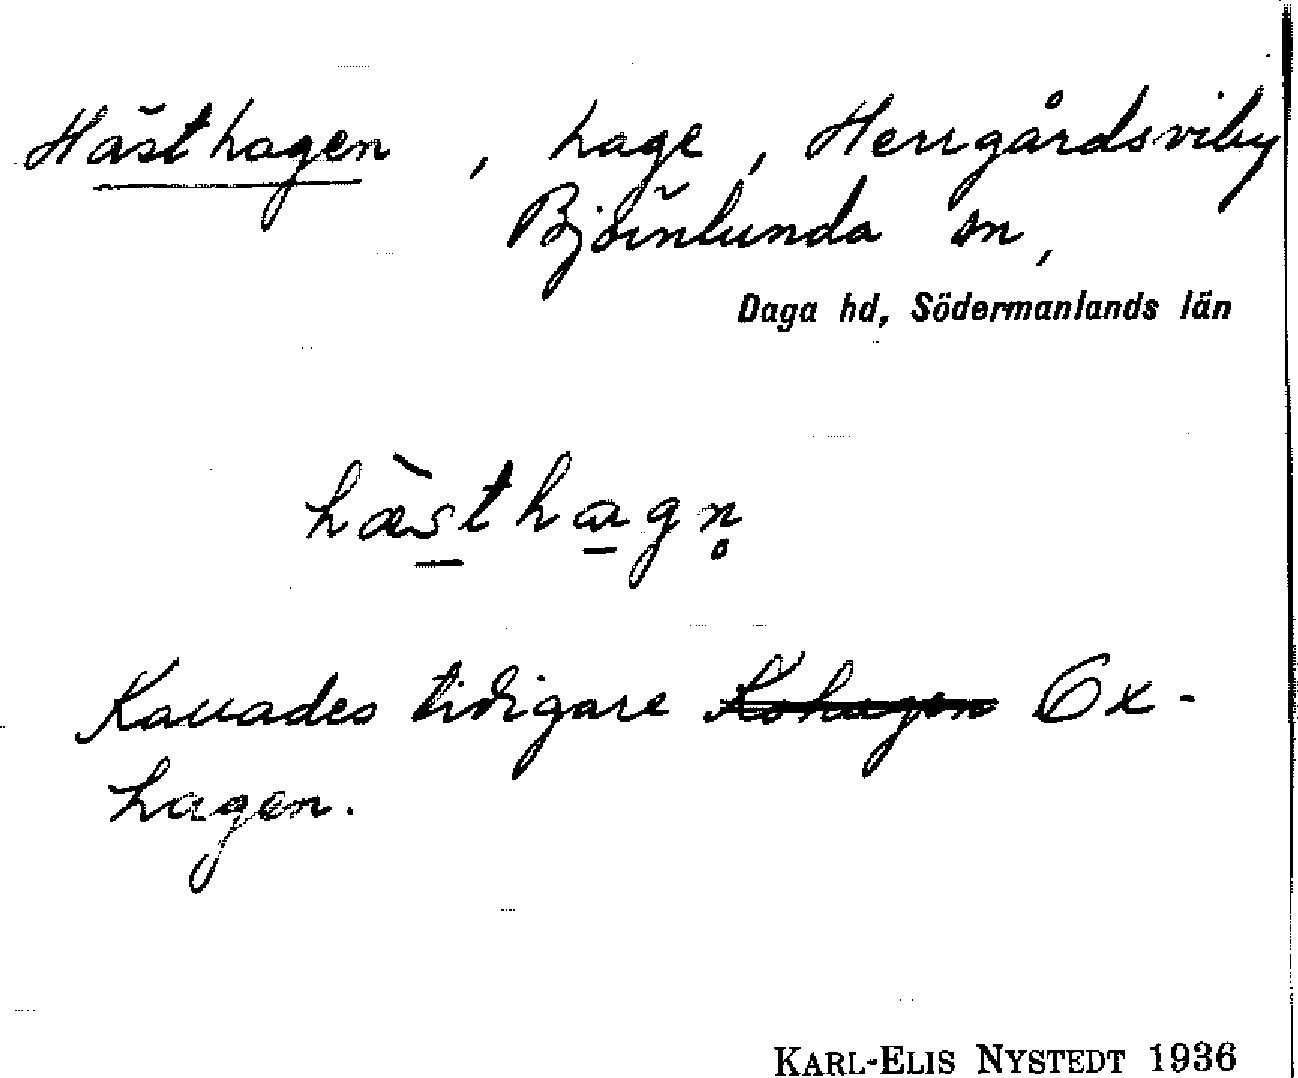 Hästhagen, hage, Herrgårdsviby
Björnlunda sn,
Daga hd, Södermanlands län
hæ̀s̱tha̱gn̥
Kallades tidigare Kohagen Ox-
hagen.
KARL-ELIS NYSTEDT 1936